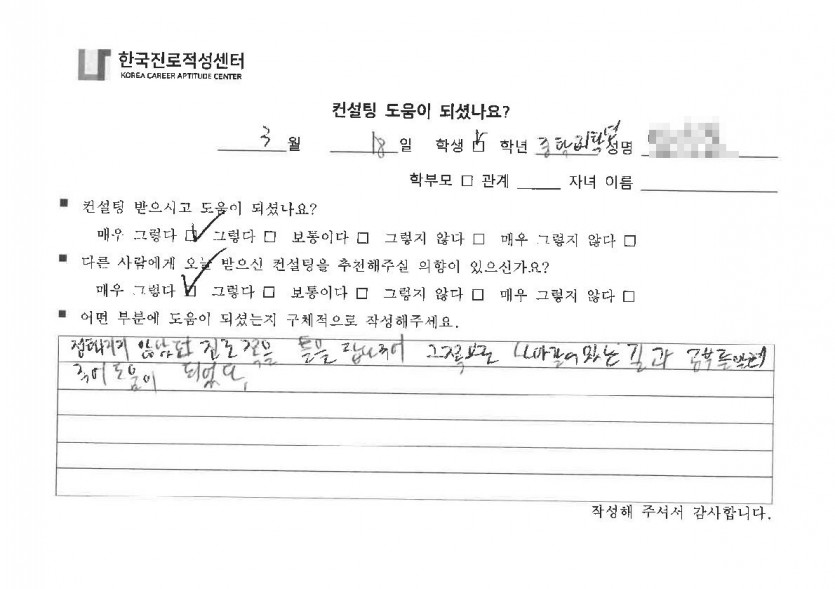 한국진로적성센터
KOREA CAREER APTITUDE CENTER
컨설팅 도움이 되셨나요?
3 월 18 일 학생 ☑ 학년 성명
학부모 □ 관계 자녀 이름
■ 컨설팅 받으시고 도움이 되셨나요?
매우 그렇다 ☑ 그렇다 □ 보통이다 □ 그렇지 않다 □ 매우 그렇지 않다 □
■ 다른 사람에게 오늘 받으신 컨설팅을 추천해주실 의향이 있으신가요?
매우 그렇다 ☑ 그렇다 □ 보통이다 □ 그렇지 않다 □ 매우 그렇지 않다 □
■ 어떤 부분에 도움이 되셨는지 구체적으로 작성해주세요.
진로 쪽을 틀을 그쪽으로 나아갈수있는 길과 공부를
주어 도움이 되었다.
작성해 주셔서 감사합니다.